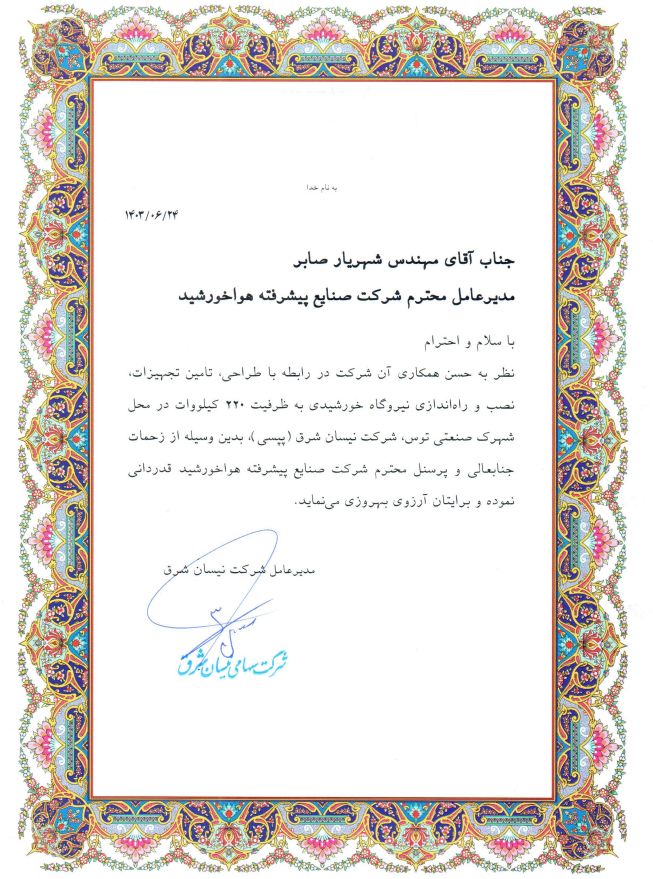 به نام خدا
۱۴۰۳/۰۶/۲۴
جناب آقای مهندس شهریار صابر
مدیرعامل محترم شرکت صنایع پیشرفته هواخورشید
با سلام و احترام
نظر به حسن همکاری آن شرکت در رابطه با طراحی، تامین تجهیزات،
نصب و راه‌اندازی نیروگاه خورشیدی به ظرفیت ۲۲۰ کیلووات در محل
شهرک صنعتی توس، شرکت نیسان شرق (پپسی)، بدین وسیله از زحمات
جنابعالی و پرسنل محترم شرکت صنایع پیشرفته هواخورشید قدردانی
نموده و برایتان آرزوی بهروزی می‌نماید.
مدیرعامل شرکت نیسان شرق
شرکت سهامی نیسان شرق